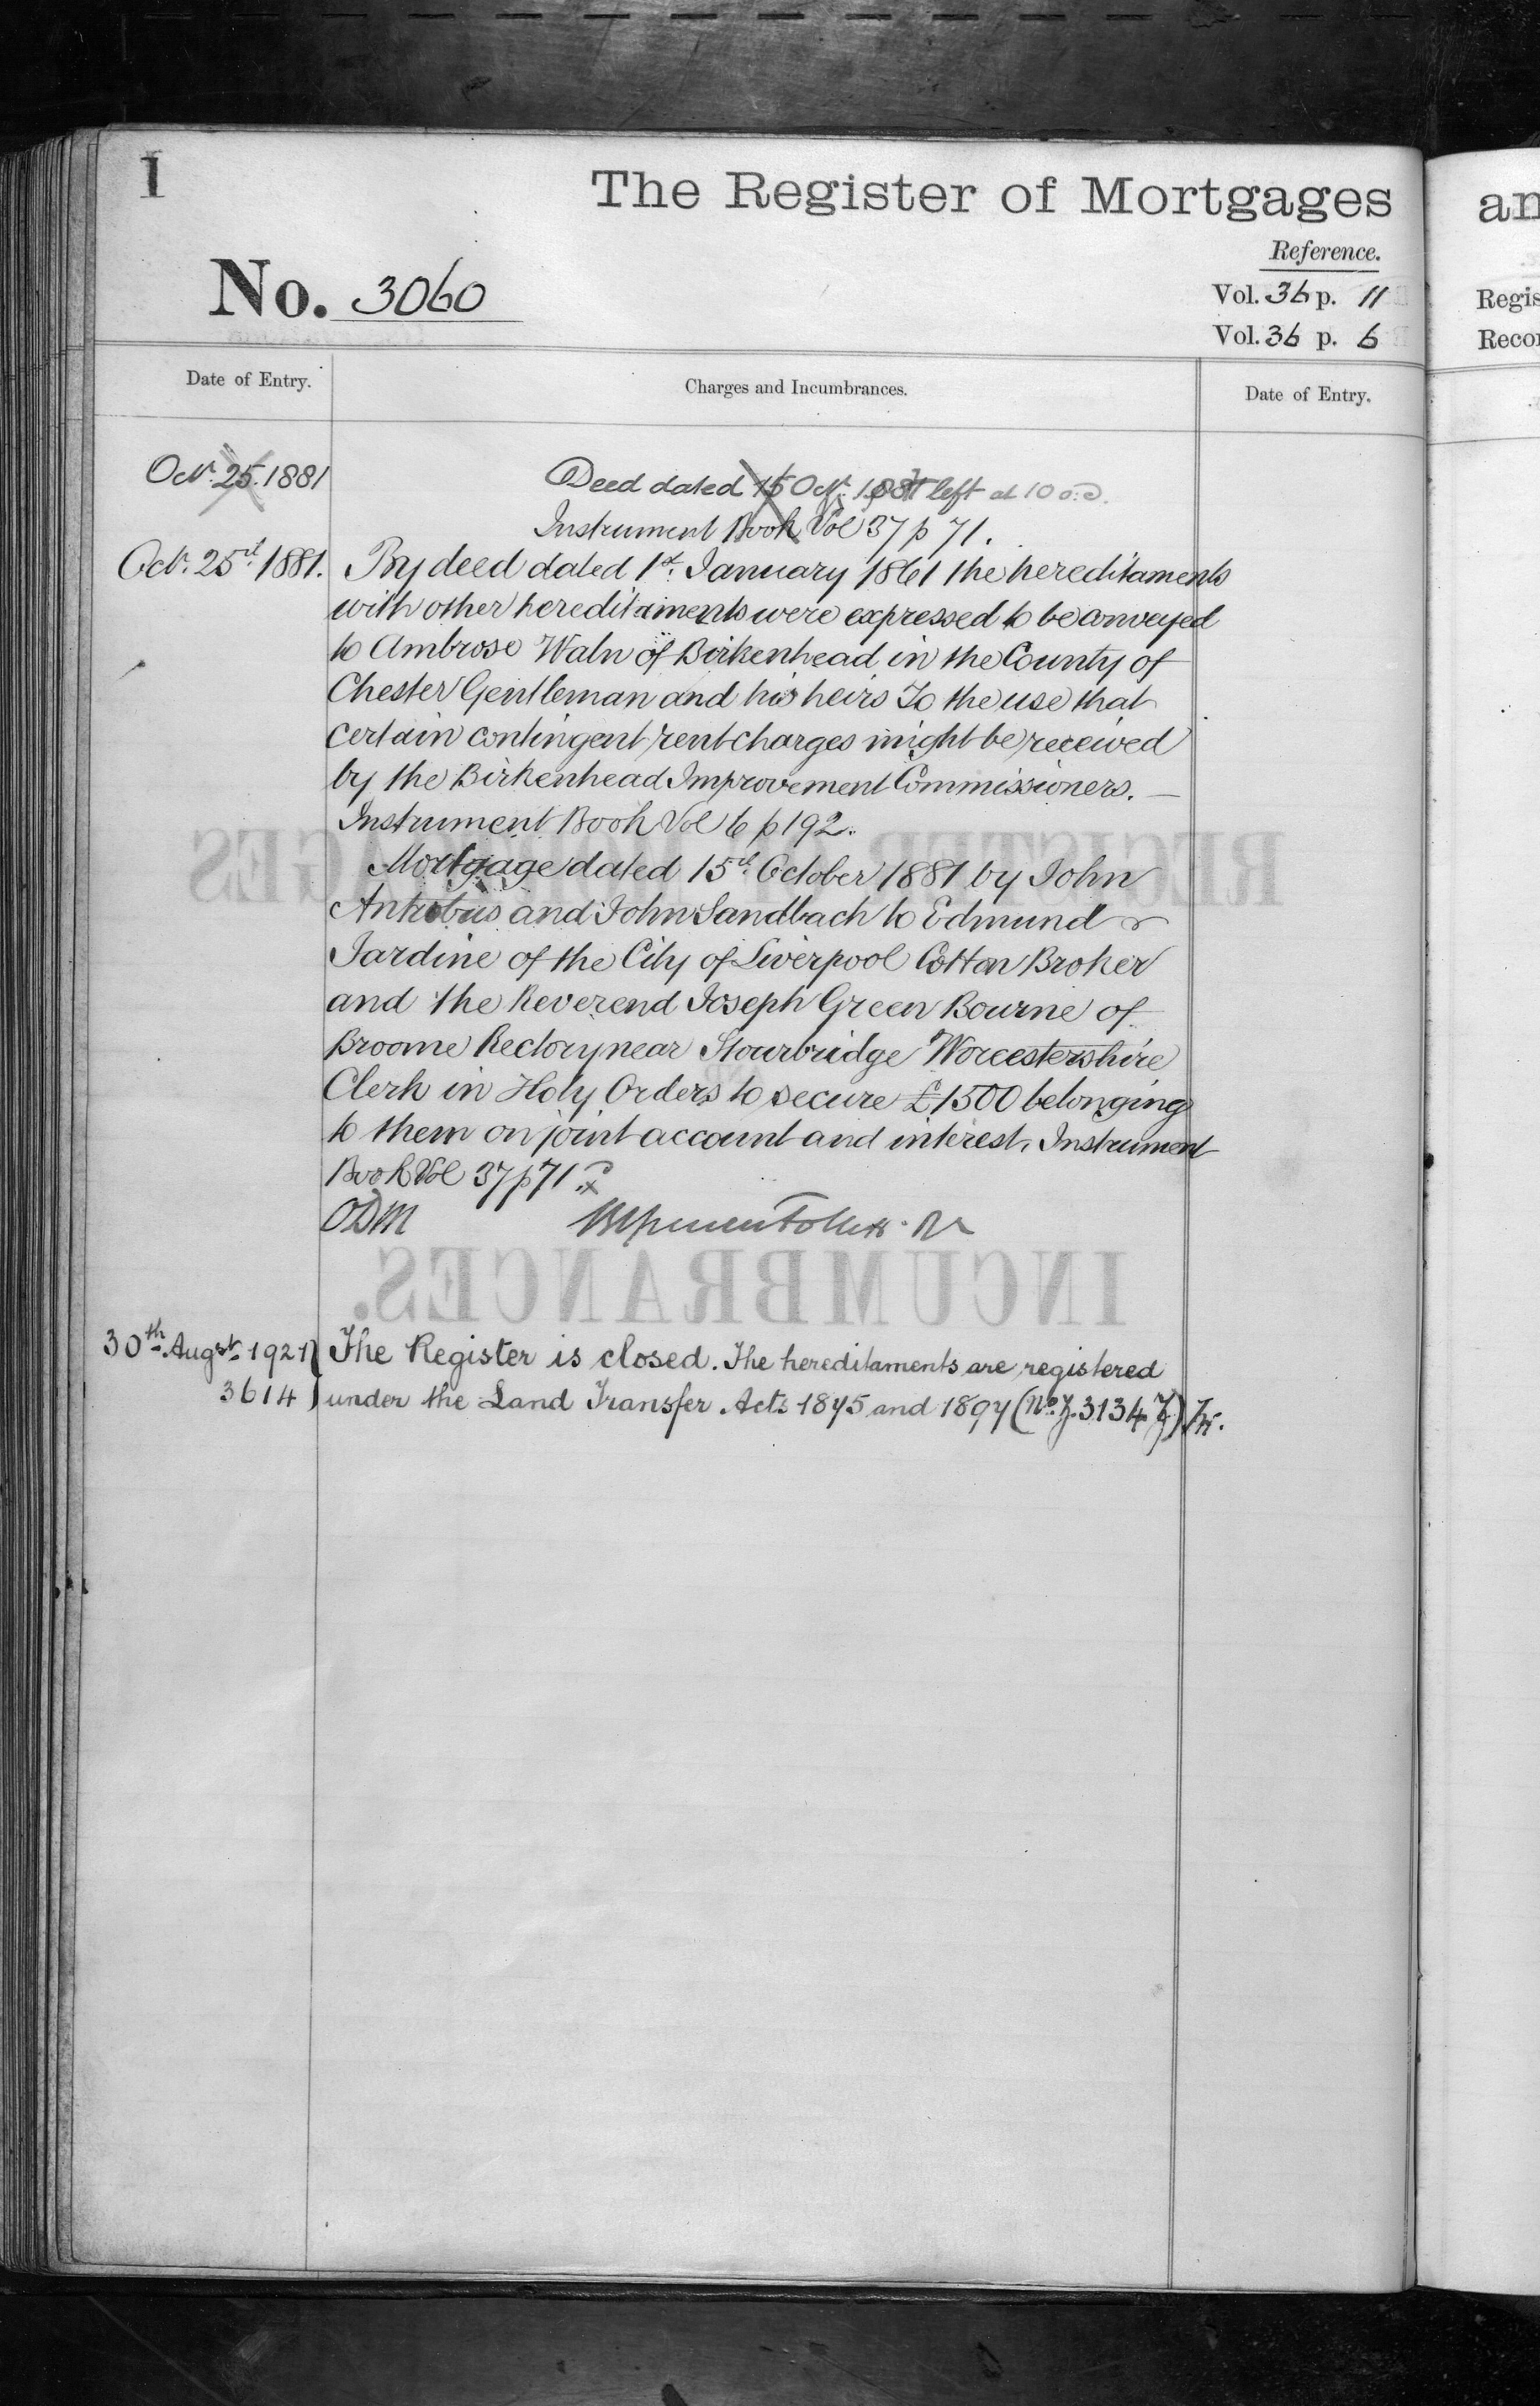 1
The Register of Mortgages
an
Reference.
No. 3060
Vol. 36 p. 11
Regis
Vol. 36 p. 6
Recor
Date of Entry.
Charges and Incumbrances.
Date of Entry.
Octr. 25. 1881
Deed dated 15 Octr. 1881 left at 10 o.c.
Instrument Book Vol 37 p 71.
Octr. 25th 1881.
By deed dated 1st January 1861 the hereditaments
with other hereditaments were expressed to be conveyed
to Ambrose Waln of Birkenhead in the County of
Chester Gentleman and his heirs To the use that
certain contingent rentcharges might be received
by the Birkenhead Improvement Commissioners. —
Instrument Book Vol 6 p 192.
Mortgage dated 15th October 1881 by John
Antrobus and John Sandbach to Edmund
Jardine of the City of Liverpool Cotton Broker
and the Reverend Joseph Green Bourne of
Broome Rectory near Stourbridge Worcestershire
Clerk in Holy Orders to secure £1500 belonging
to them on joint account and interest. Instrument
Book Vol 37 p 71.
ODM
REGISTER OF MORTGAGES
INCUMBRANCES.
30th Augst. 1921
The Register is closed. The hereditaments are registered
3614
under the Land Transfer Acts 1875 and 1897 (No. Z.31347)